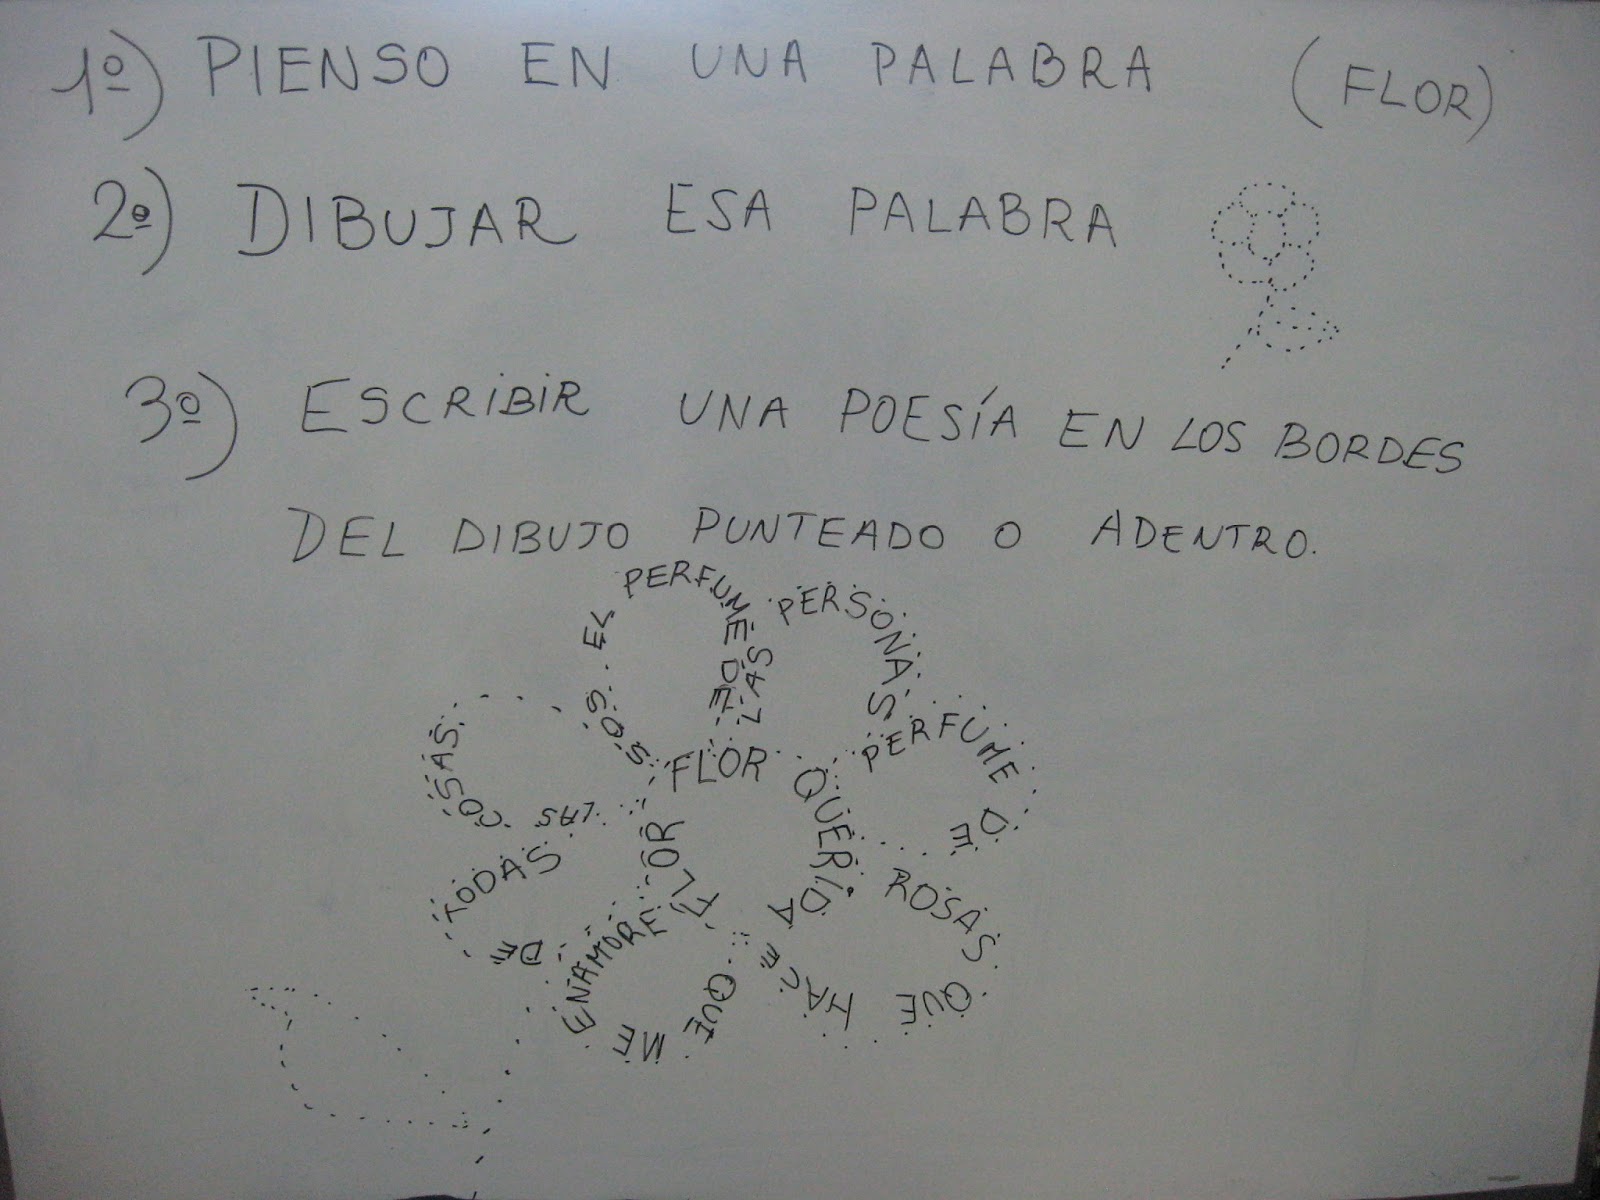 1º) PIENSO EN UNA PALABRA (FLOR)
2º) DIBUJAR ESA PALABRA
3º) ESCRIBIR UNA POESÍA EN LOS BORDES
DEL DIBUJO PUNTEADO O ADENTRO.
FLOR QUERIDA FLOR
SOS EL PERFUME DE
LAS PERSONAS
PERFUME DE
ROSAS QUE HACE
QUE ME ENAMORE
DE TODAS
LAS COSAS